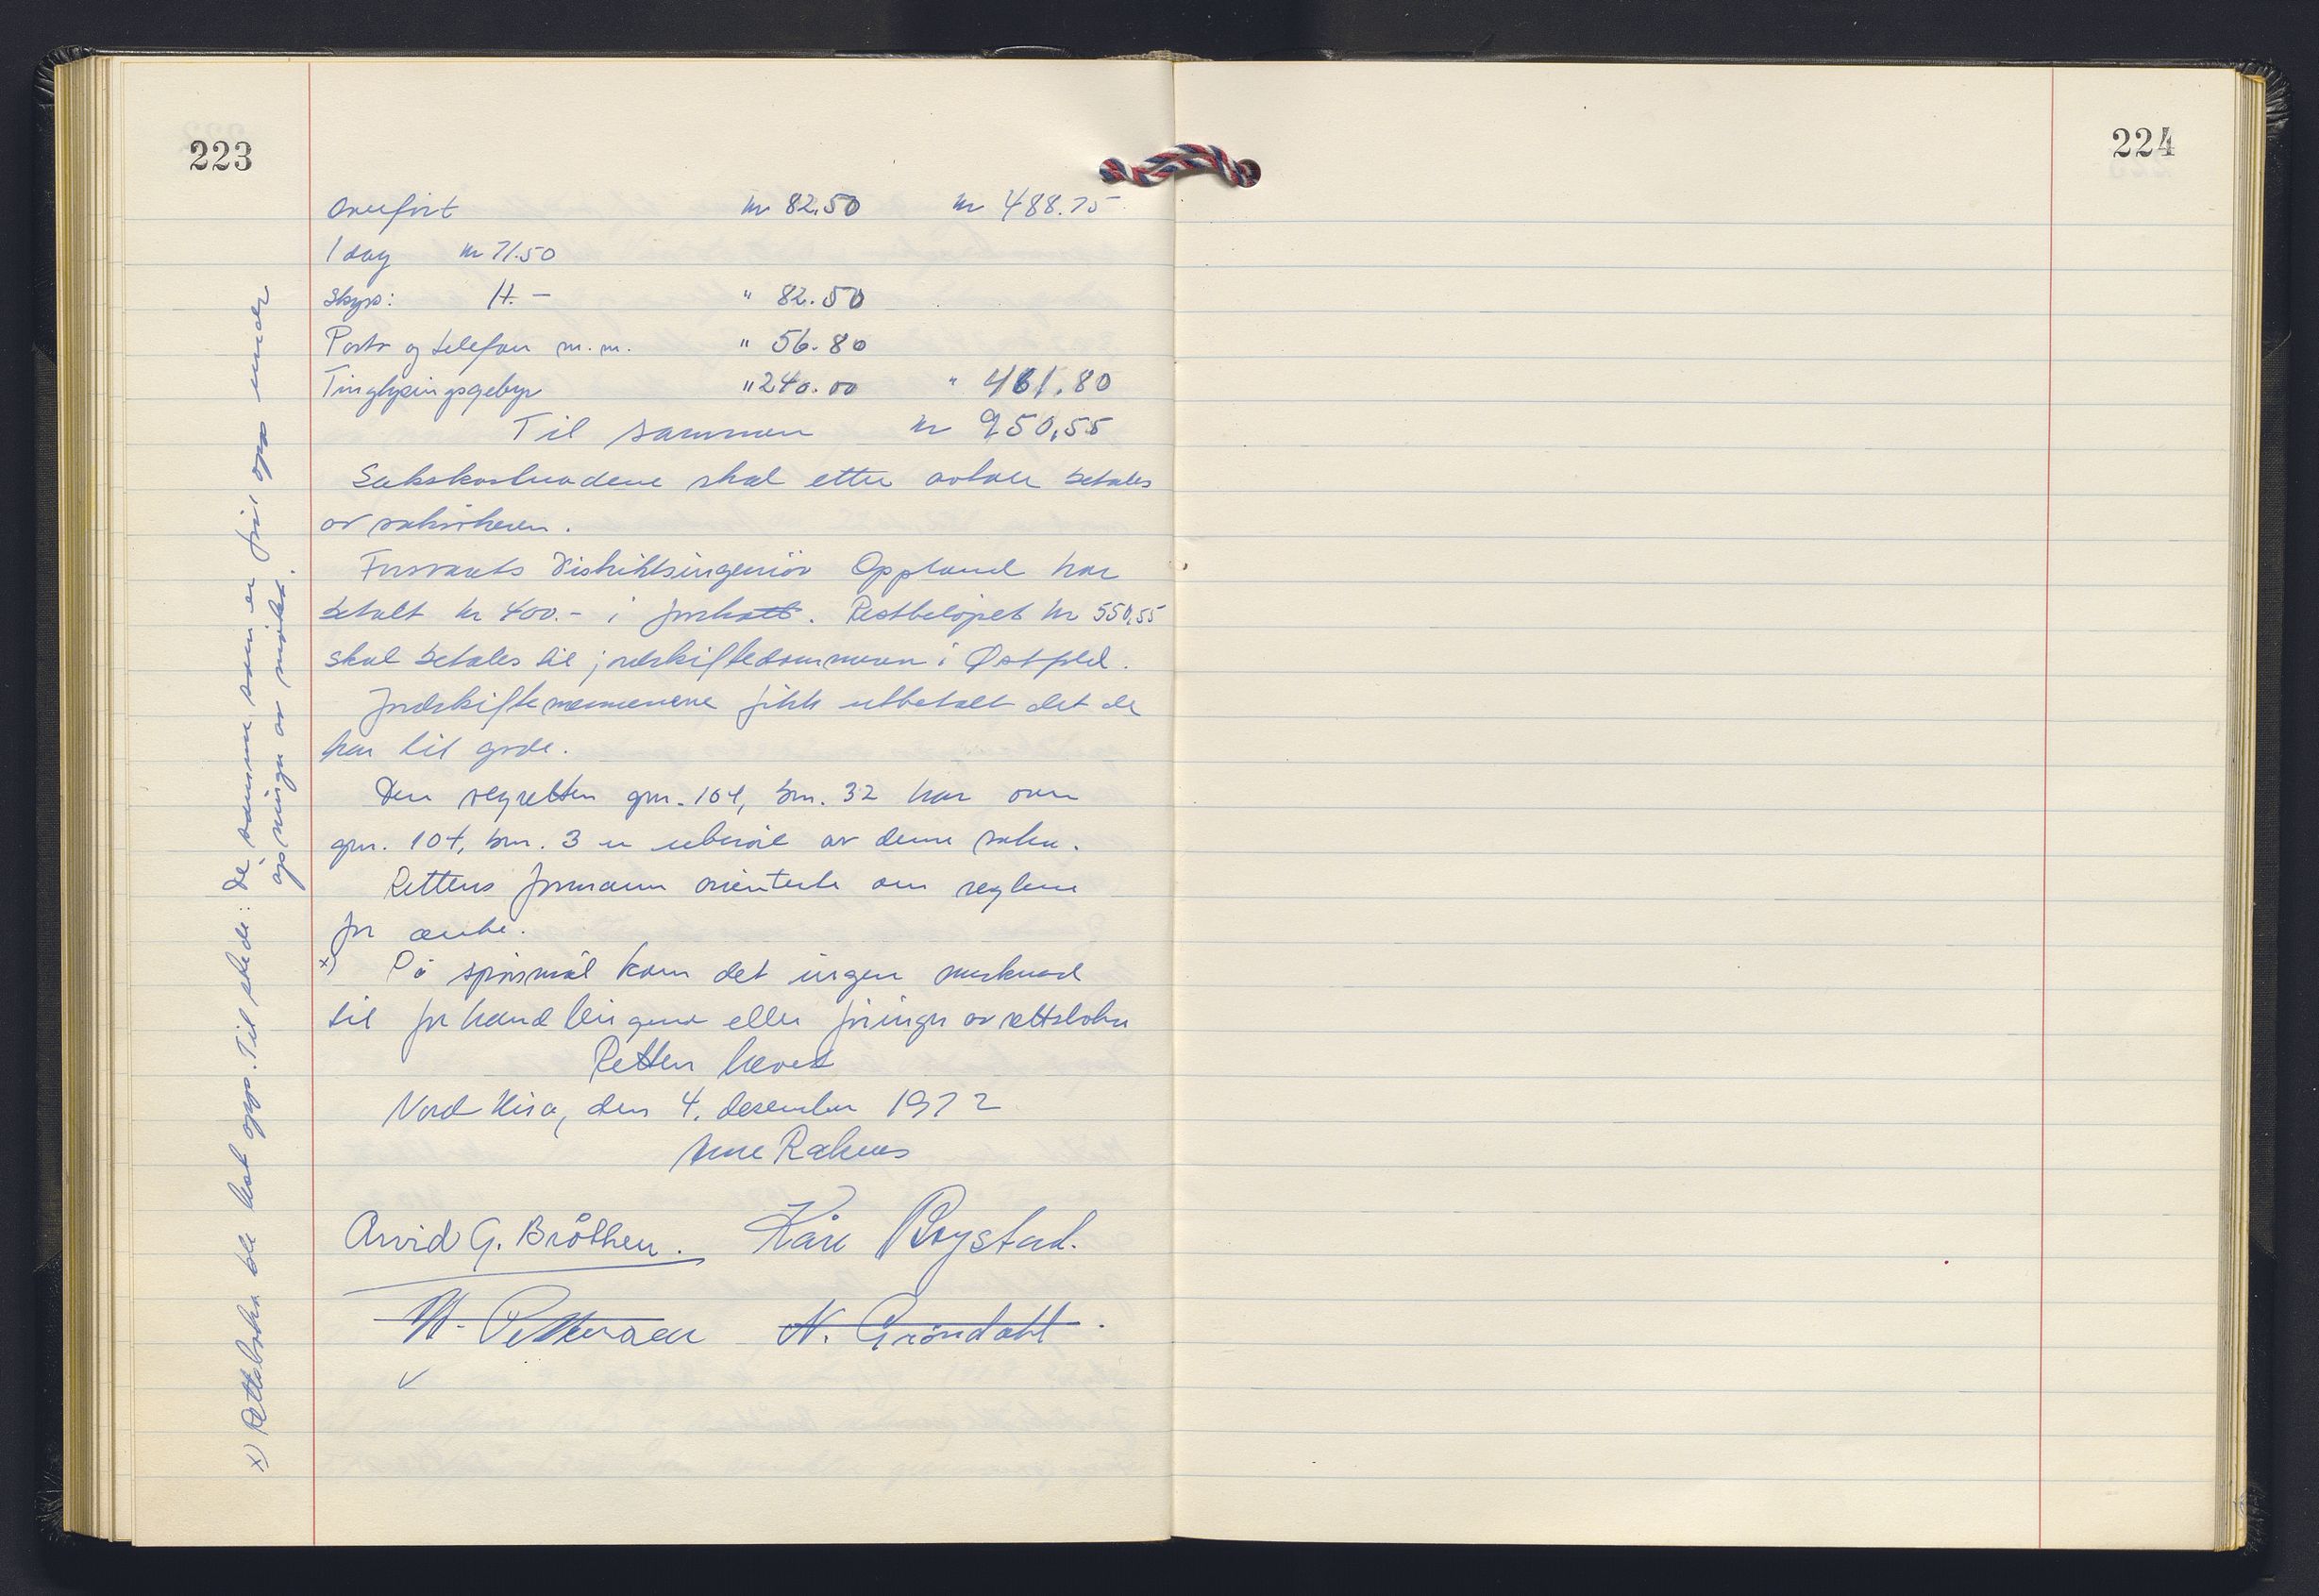 223
Overført kr 82.50 kr 488.75
1 dag kr 71.50
Skyss: 11.- " 82.50
Porto og telefon m.m. " 56.80
Tinglysingsgebyr " 240.00 " 461.80
Til sammen kr 950,55
Sakskostnadene skal etter avtale betales
av saksøkeren.
Forsvarets Distriktsingeniør Oppland har
betalt kr 400.- i forskott. Restbeløpet kr 550,55
skal betales til jordskiftedommeren i Østfold.
Jordskiftemennene fikk utbetalt det de
har til gode.
Den vegretten gnr. 104, bnr. 32 har over
gnr. 104, bnr. 3 er uberørt av denne saken.
Rettens formann orienterte om reglene
for anke.
x) På spørsmål kom det ingen merknad
til forhandlingene eller føringen av rettsboken
Retten hevet
Nord Hisa, den 4. desember 1972
Arne Raknes
Arvid G. Bråthen. Kåre Brystad.
H. Pettersen N. Grøndahl.
x) Rettsboka ble lest opp. Til stede: De samme som er ført opp under
opningen av møtet.
224